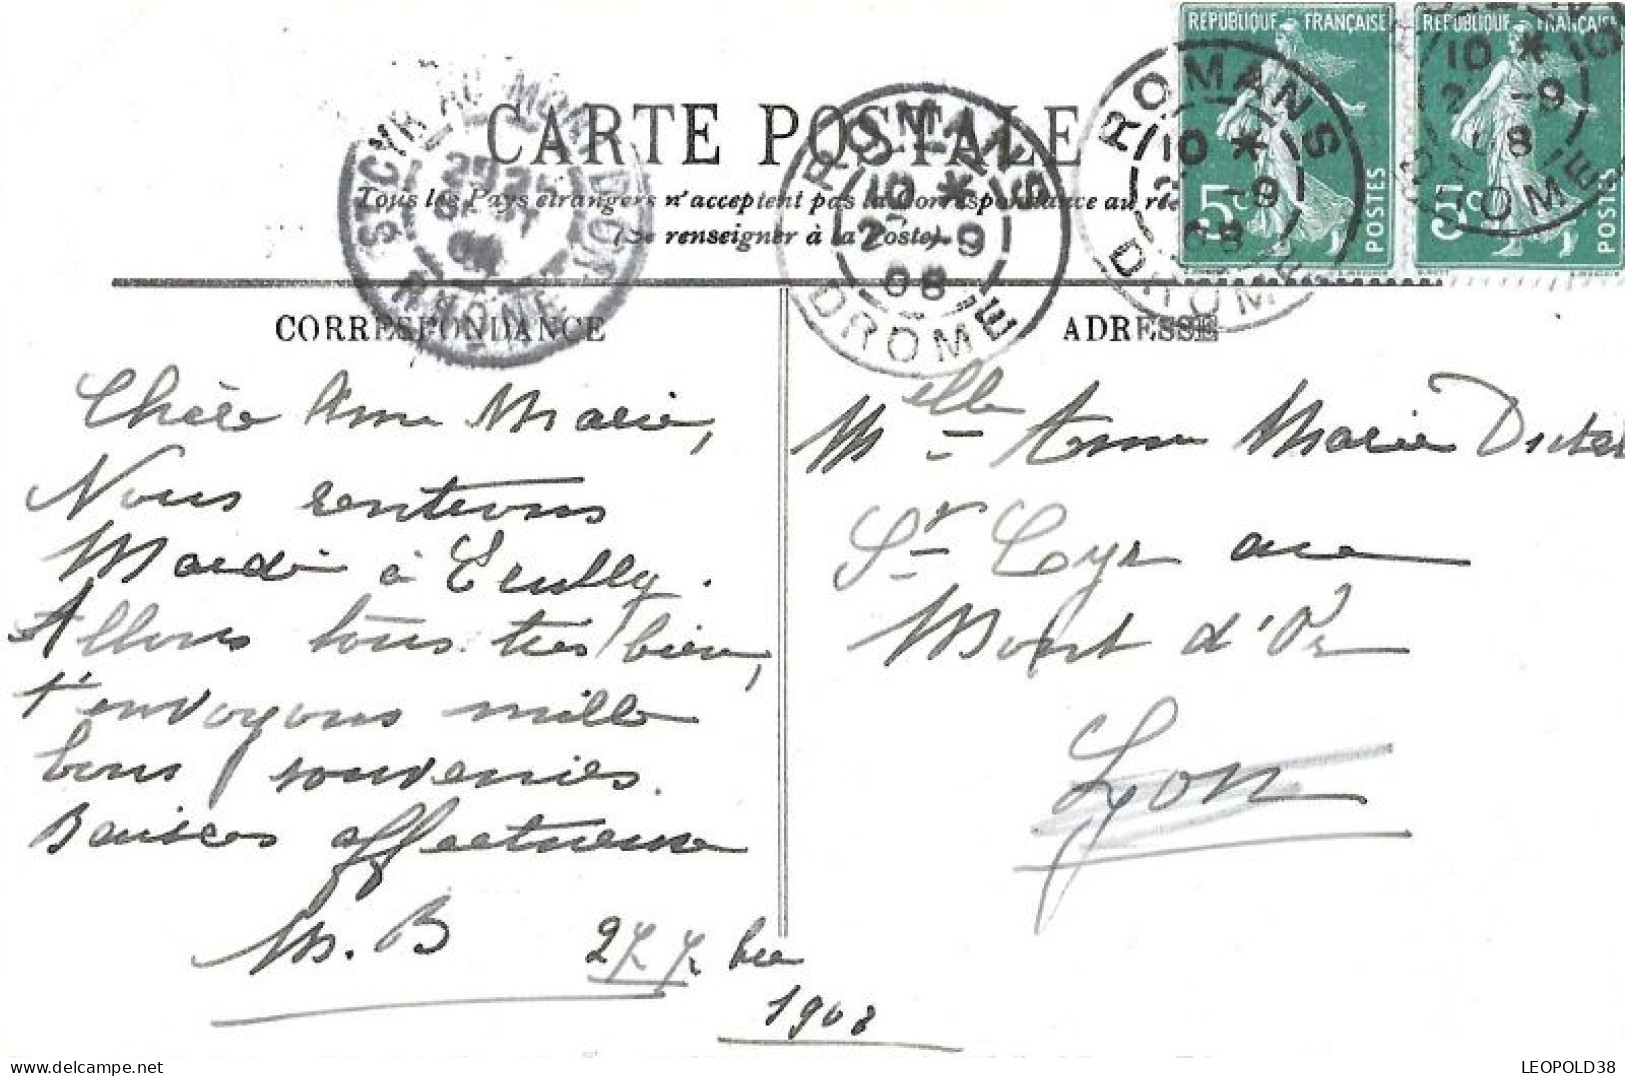 RÉPUBLIQUE FRANÇAISE
RÉPUBLIQUE FRANÇAISE
5c POSTES
5c POSTES
ROMANS
10 *
-9
08
DROME
ROMANS
10 *
2 -9
08
DROME
10 *
2 -9
08
DROME
ST CYR AU MONT D'OR
RHONE
CARTE POSTALE
Tous les Pays étrangers n'acceptent pas la Correspondance au
(Se renseigner à la Poste)
CORRESPONDANCE
ADRESSE
Chère Anne Marie,
Nous rentrons
Mardi à Ecully.
Allons tous très bien,
t'envoyons mille
bons souvenirs.
Baisers affectueux
M. B
27 7bre
1908
Melle Anne Marie
St Cyr au
Mont d'Or
Lyon
LEOPOLD38